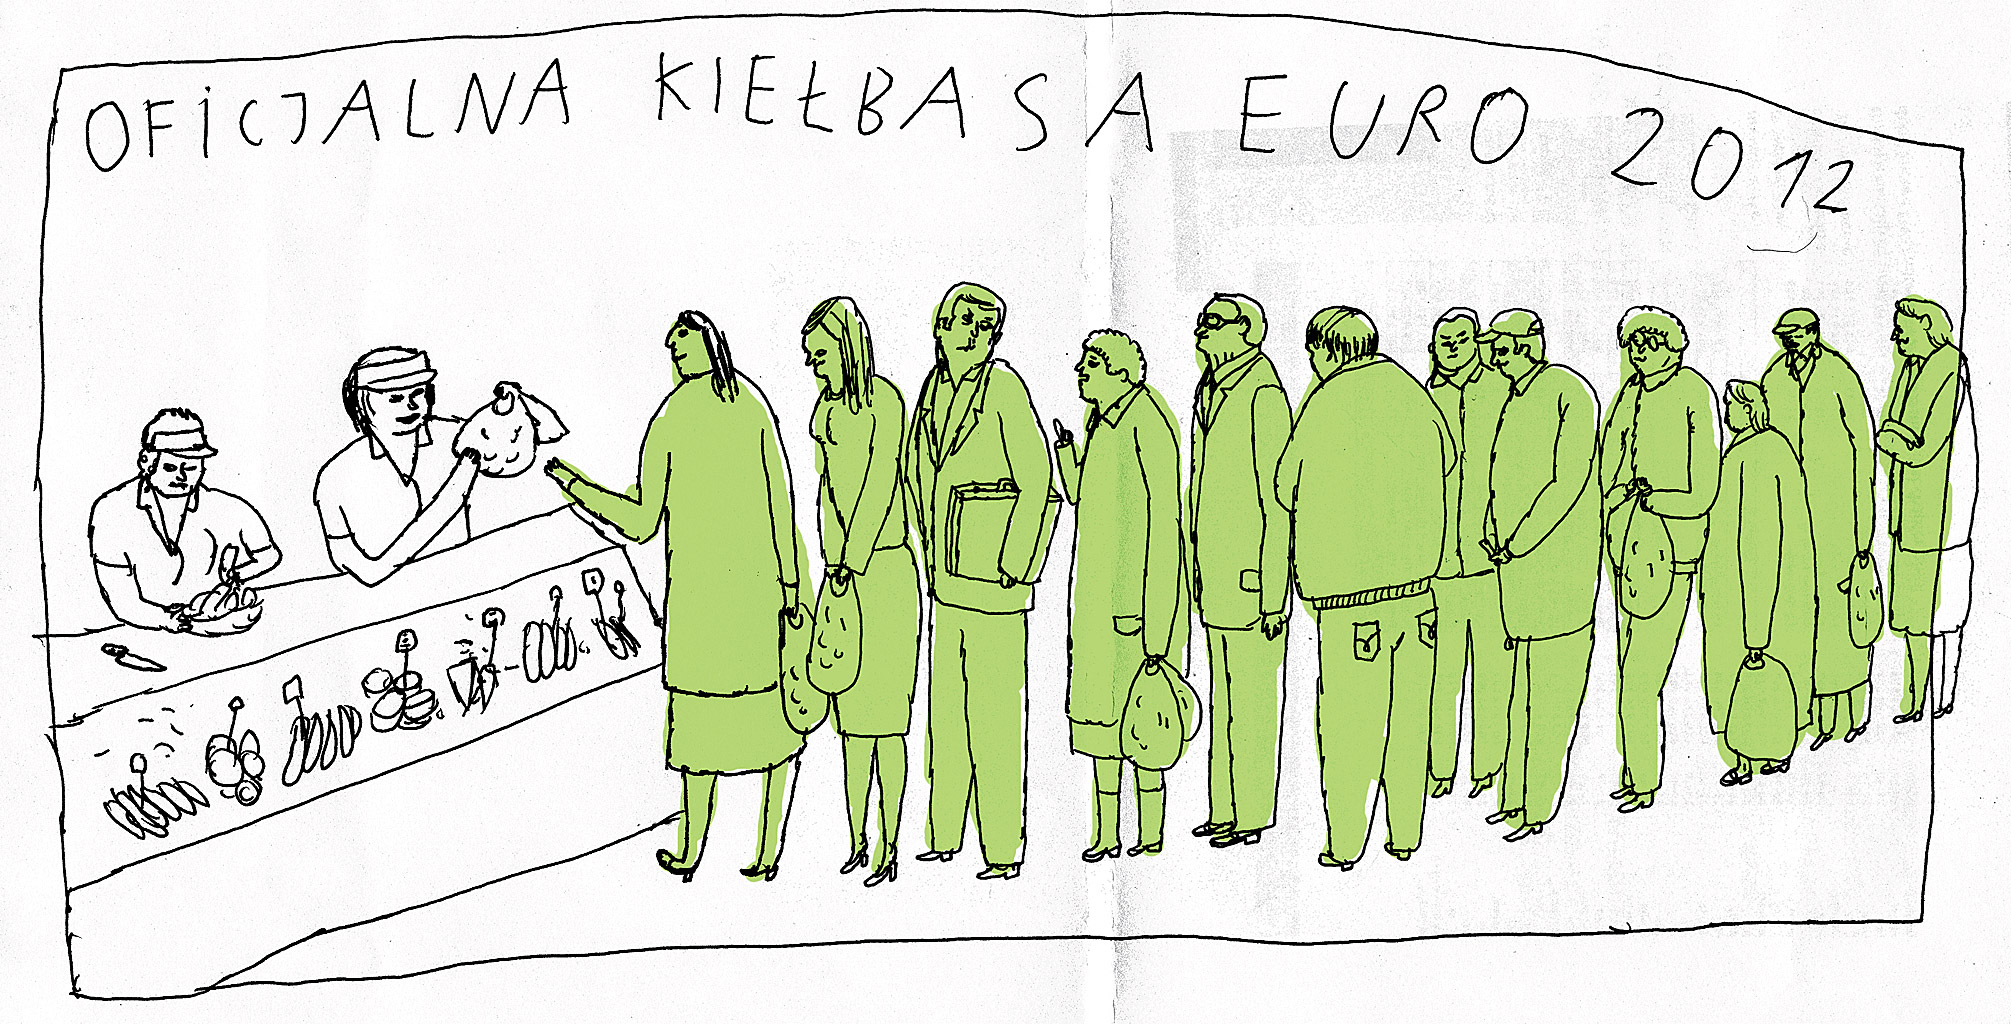 OFICJALNA KIEŁBASA EURO 2012